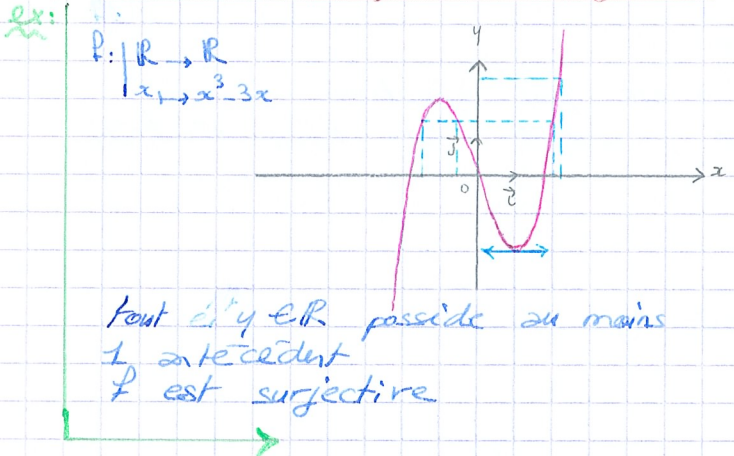 ex:
f: | ℝ → ℝ
x ↦ x³-3x
y
j
o
i
x
tout élt y ∈ ℝ possède au moins
1 antécédent
f est surjective